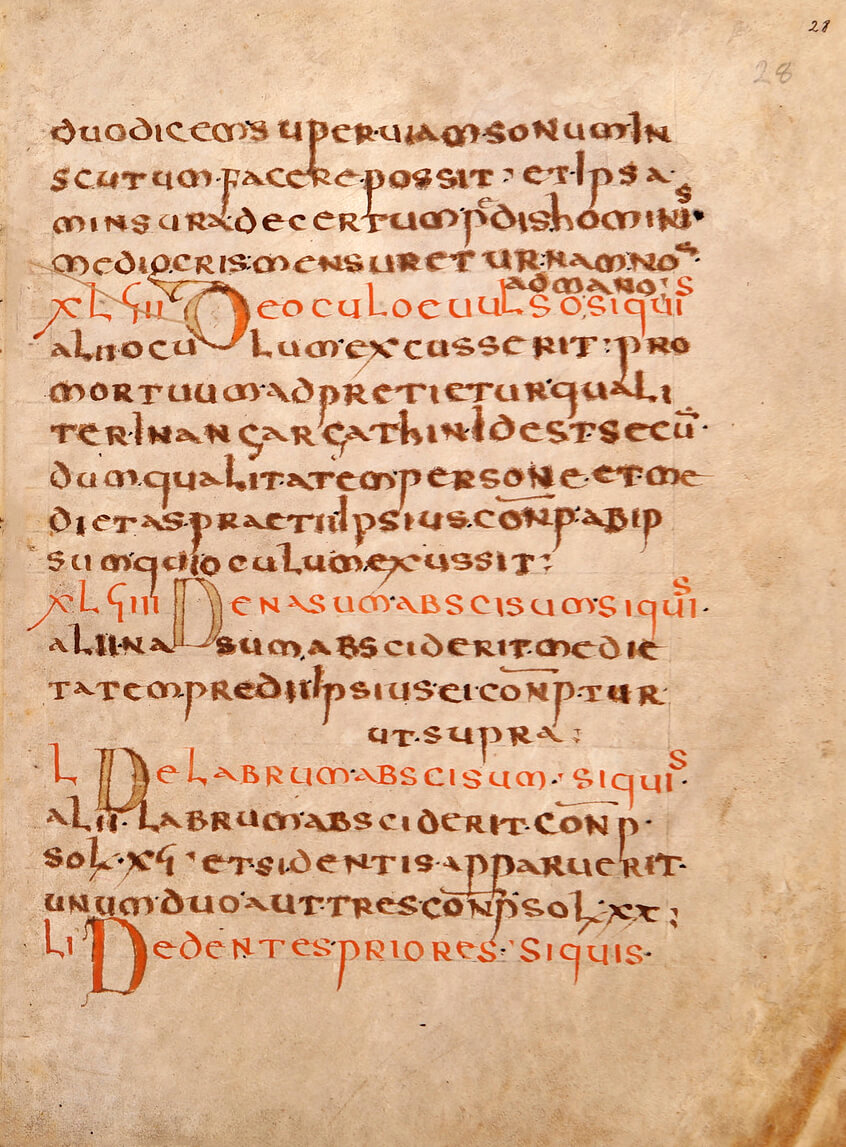 28
28
duodicem supeR·uiam·sonum·In
scutum·faceRe·possit: et·Ipsa·
minsuRa·deceRtum·pedis·hominis·
mediocRis·mensuRetuR·nam·nos·
admano
XLVIII De oculo euulso, siquis
alii ocu lum·excusseRit: pRo
moRtuum·adpRetietuR·quali
teR·In angaRgathin·Id est·secū·
dum·qualitatem·peRsone·et·me
dietas·pRaetii Ipsius·conp·ab ip
sum·qui oculum·excussit:
XLVIIII De nasum·abscisum·siquis·
alii·na sum·abscideRit·medie
tatem·pRedii Ipsius·ei conp·tuR
ut·supRa:
L De labRum·abscisum· siquis·
alii· labRum·abscideRit·conp·
sol·XVI· et·si dentis·appaRueRit·
unum·duo·aut·tRes·conp·sol·xx;
LI De dentes·pRioRes· siquis·